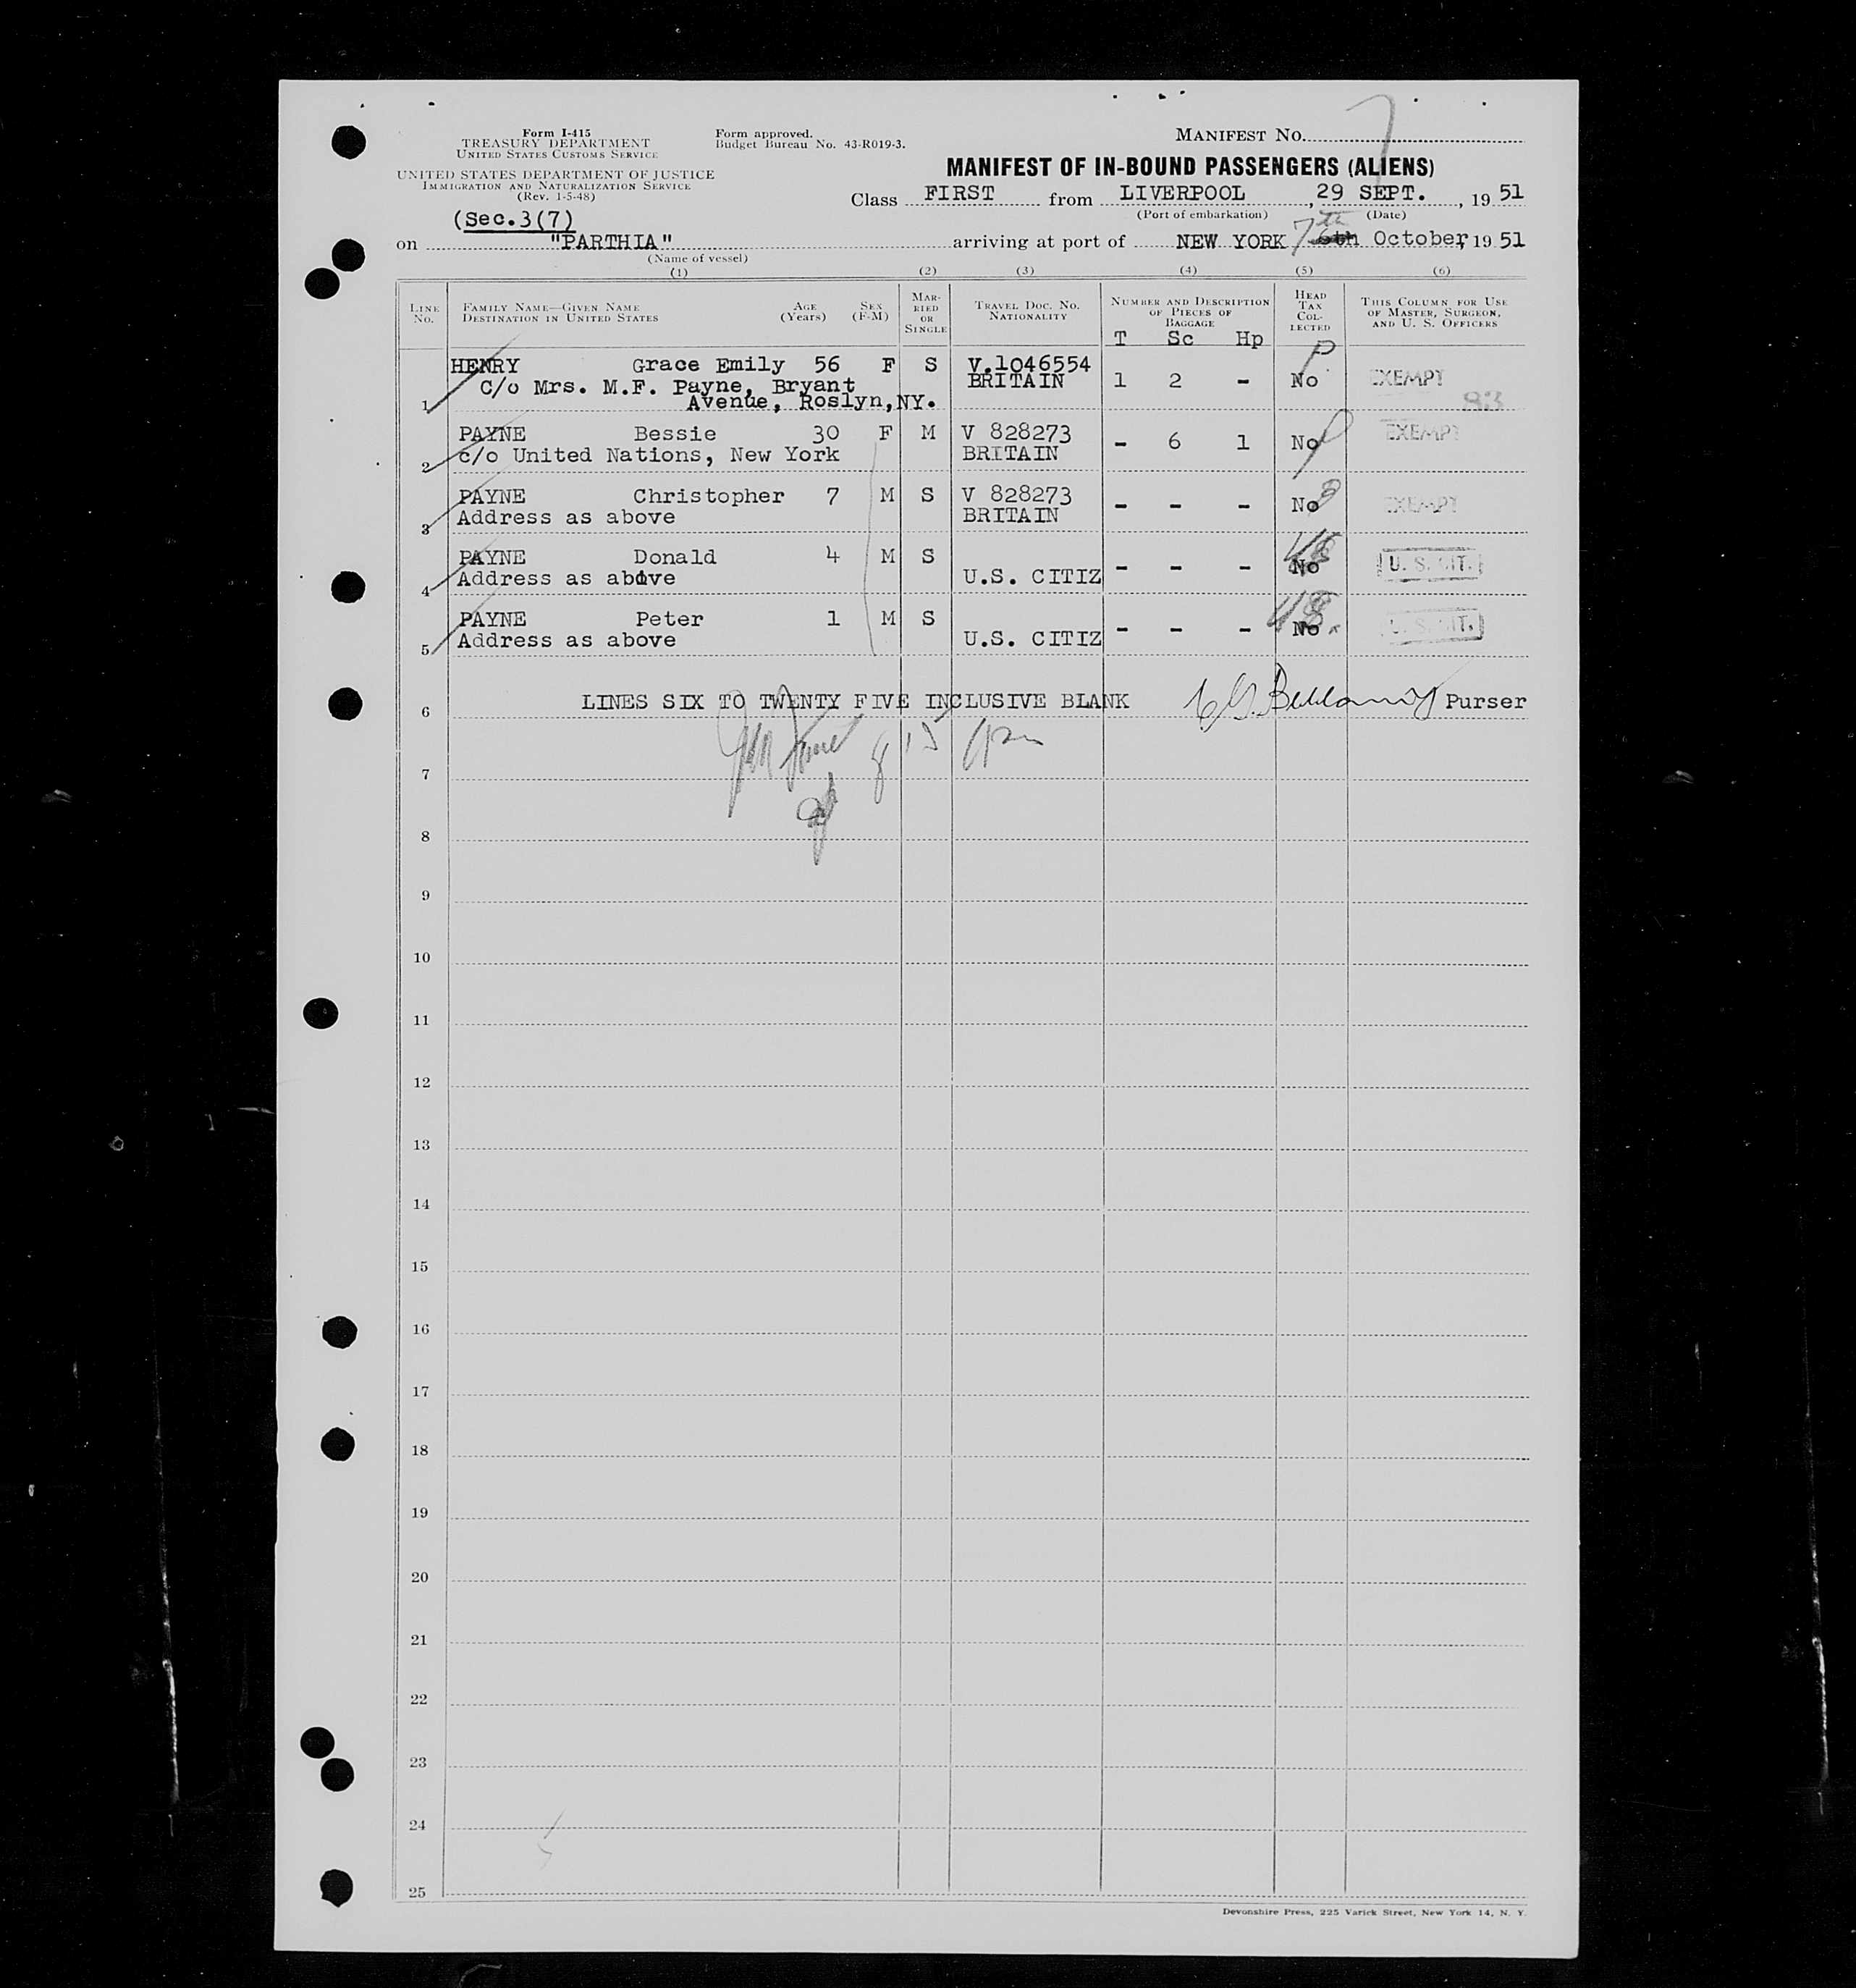 Form I-415
TREASURY DEPARTMENT
UNITED STATES CUSTOMS SERVICE
Form approved.
Budget Bureau No. 43-R019-3.
MANIFEST NO. 7
UNITED STATES DEPARTMENT OF JUSTICE
IMMIGRATION AND NATURALIZATION SERVICE
(Rev. 1-5-48)
MANIFEST OF IN-BOUND PASSENGERS (ALIENS)
Class FIRST from LIVERPOOL, 29 SEPT., 1951
(Port of embarkation) (Date)
(Sec.3(7)
on "PARTHIA" arriving at port of NEW YORK 7th 6th October, 1951
(Name of vessel)
(1) (2) (3) (4) (5) (6)
LINE No. FAMILY NAME—GIVEN NAME DESTINATION IN UNITED STATES AGE (Years) SEX (F-M) MARRIED OR SINGLE TRAVEL DOC. NO. NATIONALITY NUMBER AND DESCRIPTION OF PIECES OF BAGGAGE HEAD TAX COLLECTED THIS COLUMN FOR USE OF MASTER, SURGEON, AND U. S. OFFICERS
T Sc Hp
HENRY Grace Emily 56 F S V.1046554
C/o Mrs. M.F. Payne, Bryant BRITAIN 1 2 - No EXEMPT
1 Avenue, Roslyn, NY. 93
PAYNE Bessie 30 F M V 828273 - 6 1 No EXEMPT
2 c/o United Nations, New York BRITAIN
PAYNE Christopher 7 M S V 828273 - - - No EXEMPT
3 Address as above BRITAIN
PAYNE Donald 4 M S - - - No U. S. CIT.
4 Address as above U.S. CITIZ
PAYNE Peter 1 M S - - - No U. S. CIT.
5 Address as above U.S. CITIZ
6 LINES SIX TO TWENTY FIVE INCLUSIVE BLANK Purser
7
8
9
10
11
12
13
14
15
16
17
18
19
20
21
22
23
24
25
Devonshire Press, 225 Varick Street, New York 14, N. Y.